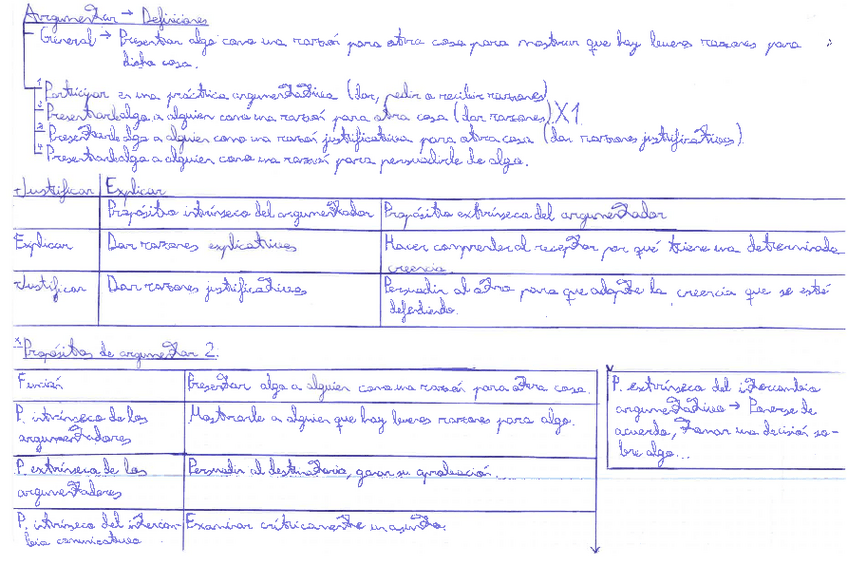 Argumentar → Definiciones
General → Presentar algo como una razón para otra cosa para mostrar que hay buenas razones para
dicha cosa.
1 Participar en una práctica argumentativa (dar, pedir o recibir razones)
2 Presentarle algo a alguien como una razón para otra cosa (dar razones) X1
3 Presentarle algo a alguien como una razón justificativa para otra cosa (dar razones justificativas).
4 Presentarle algo a alguien como una razón para persuadirle de algo.
Justificar Explicar
Propósito intrínseco del argumentador Propósito extrínseco del argumentador
Explicar Dar razones explicativas Hacer comprender al receptor por qué tiene una determinada
creencia.
Justificar Dar razones justificativas Persuadir al otro para que adopte la creencia que se esté
defendiendo.
Propósitos de argumentar 2.
Función Presentar algo a alguien como una razón para otra cosa.
P. intrínseco de los Mostrarle a alguien que hay buenas razones para algo.
argumentadores
P. extrínseco de los Persuadir al destinatario, ganar su aprobación.
argumentadores
P. intrínseco del intercam- Examinar críticamente un asunto.
bio comunicativo
P. extrínseco del intercambio
argumentativo → Ponerse de
acuerdo, tomar una decisión so-
bre algo...